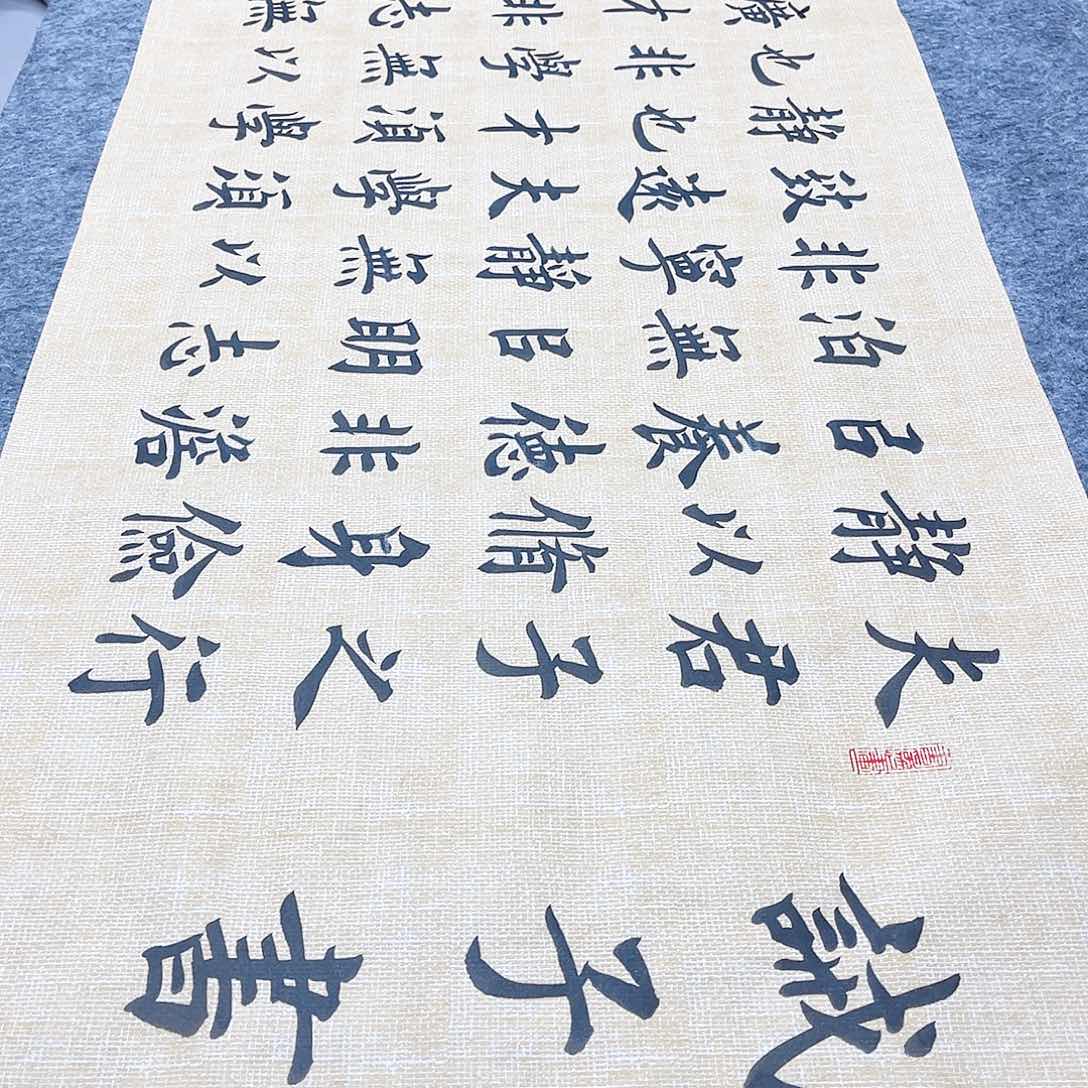 誡子書
夫君子之行
靜以脩身儉
㠯養德非澹
泊無㠯明志
非寧靜無以
致遠夫學須
靜也才須學
也非學無以
廣才非志無